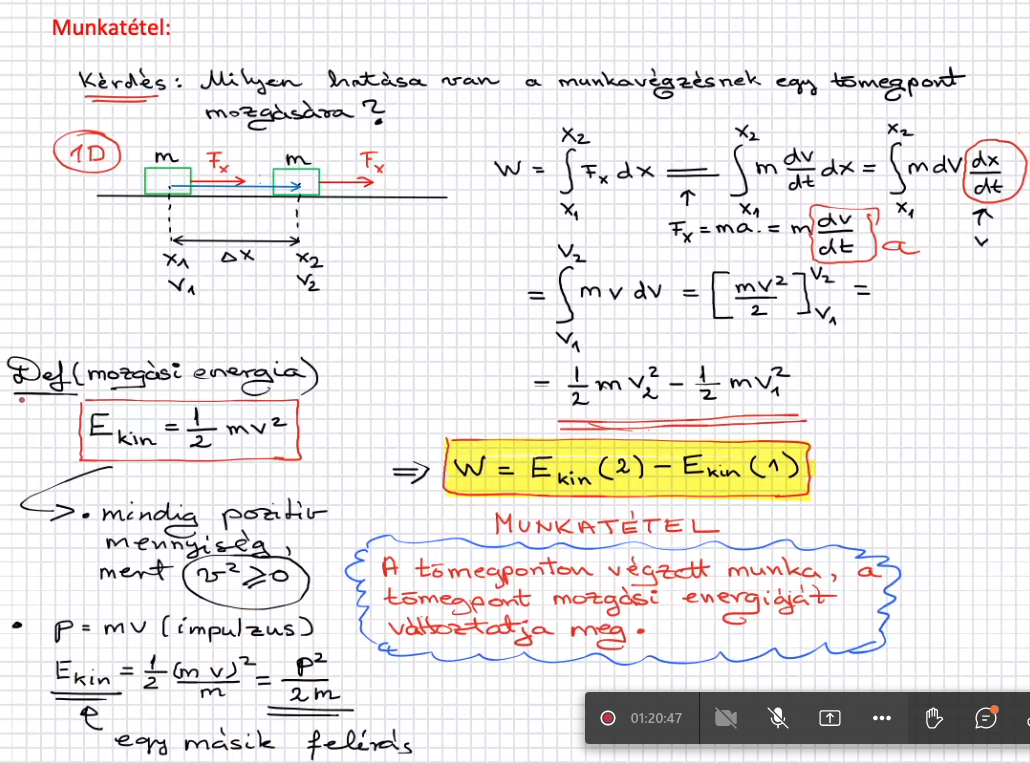 Munkatétel:
Kérdés: Milyen hatása van a munkavégzésnek egy tömegpont
mozgására?
1D
m Fx m Fx
x1 Δx x2
v1 v2
W = ∫_{x1}^{x2} Fx dx = ∫_{x1}^{x2} m dv/dt dx = ∫_{x1}^{x2} m dv dx/dt
↑ ↑
Fx = ma = m dv/dt a v
= ∫_{v1}^{v2} m v dv = [mv²/2]_{v1}^{v2} =
= 1/2 m v2² - 1/2 m v1²
⇒ W = Ekin (2) - Ekin (1)
MUNKATÉTEL
A tömegponton végzett munka, a
tömegpont mozgási energiáját
változtatja meg.
Def (mozgási energia)
Ekin = 1/2 mv²
• mindig pozitív
mennyiség,
mert v² ≥ 0
• p = mv (impulzus)
Ekin = 1/2 (m v)²/m = p²/2m
egy másik felírás
01:20:47